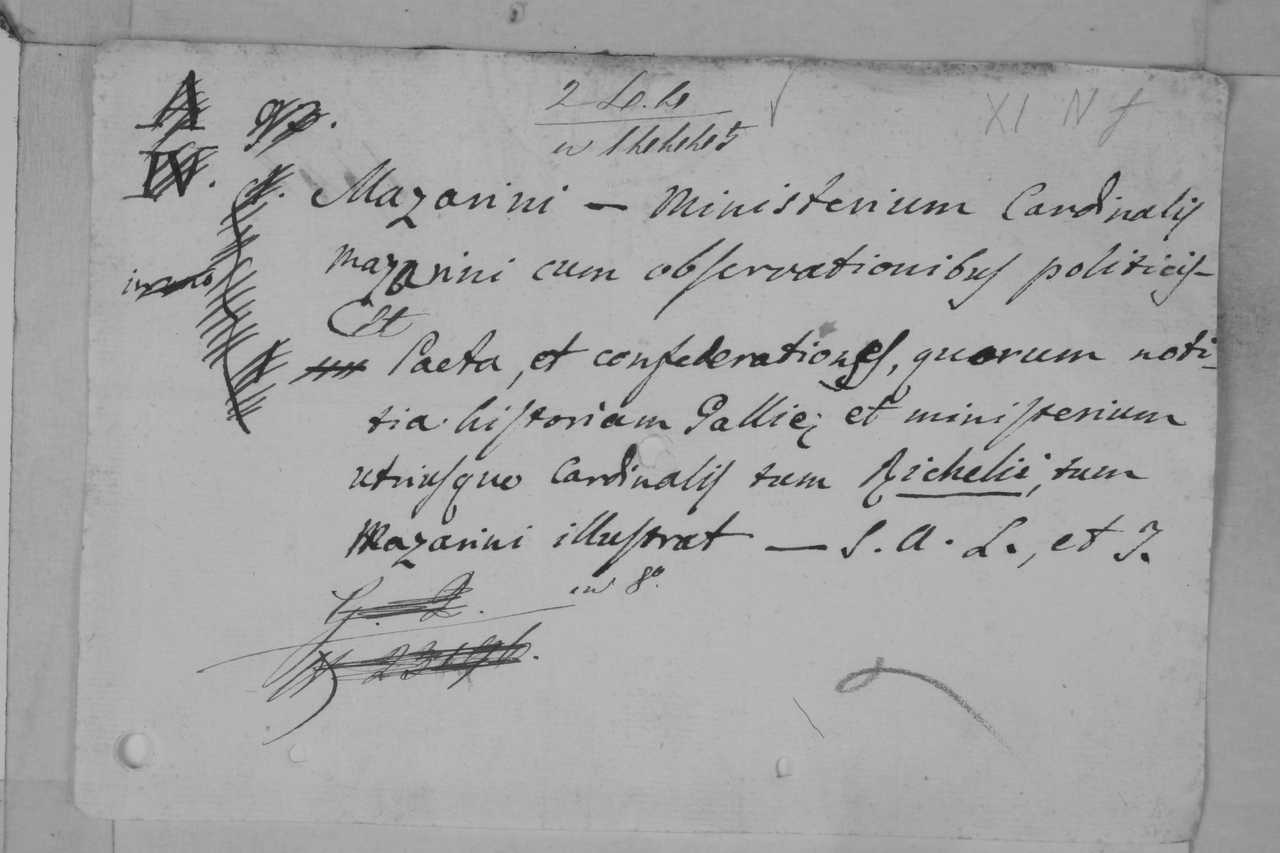 XI N f
Mazarini — Ministerium Cardinalis
Mazarini cum observationibus politicis-
Et
Pacta, et confederationes, quorum noti-
tia historiam Gallię et ministerium
utriusque Cardinalis tum Richelii, tum
Mazarini illustrat — S. A. L., et T.
in 8º.